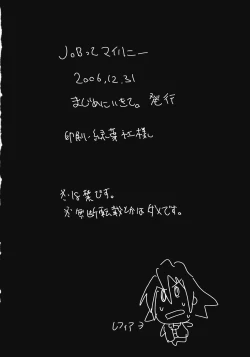 JOBってマイハニー
2006.12.31
まじめにいきて。発行
印刷・緑葉社様
※18禁です。
※無断転載とかはダメです。
レフィア